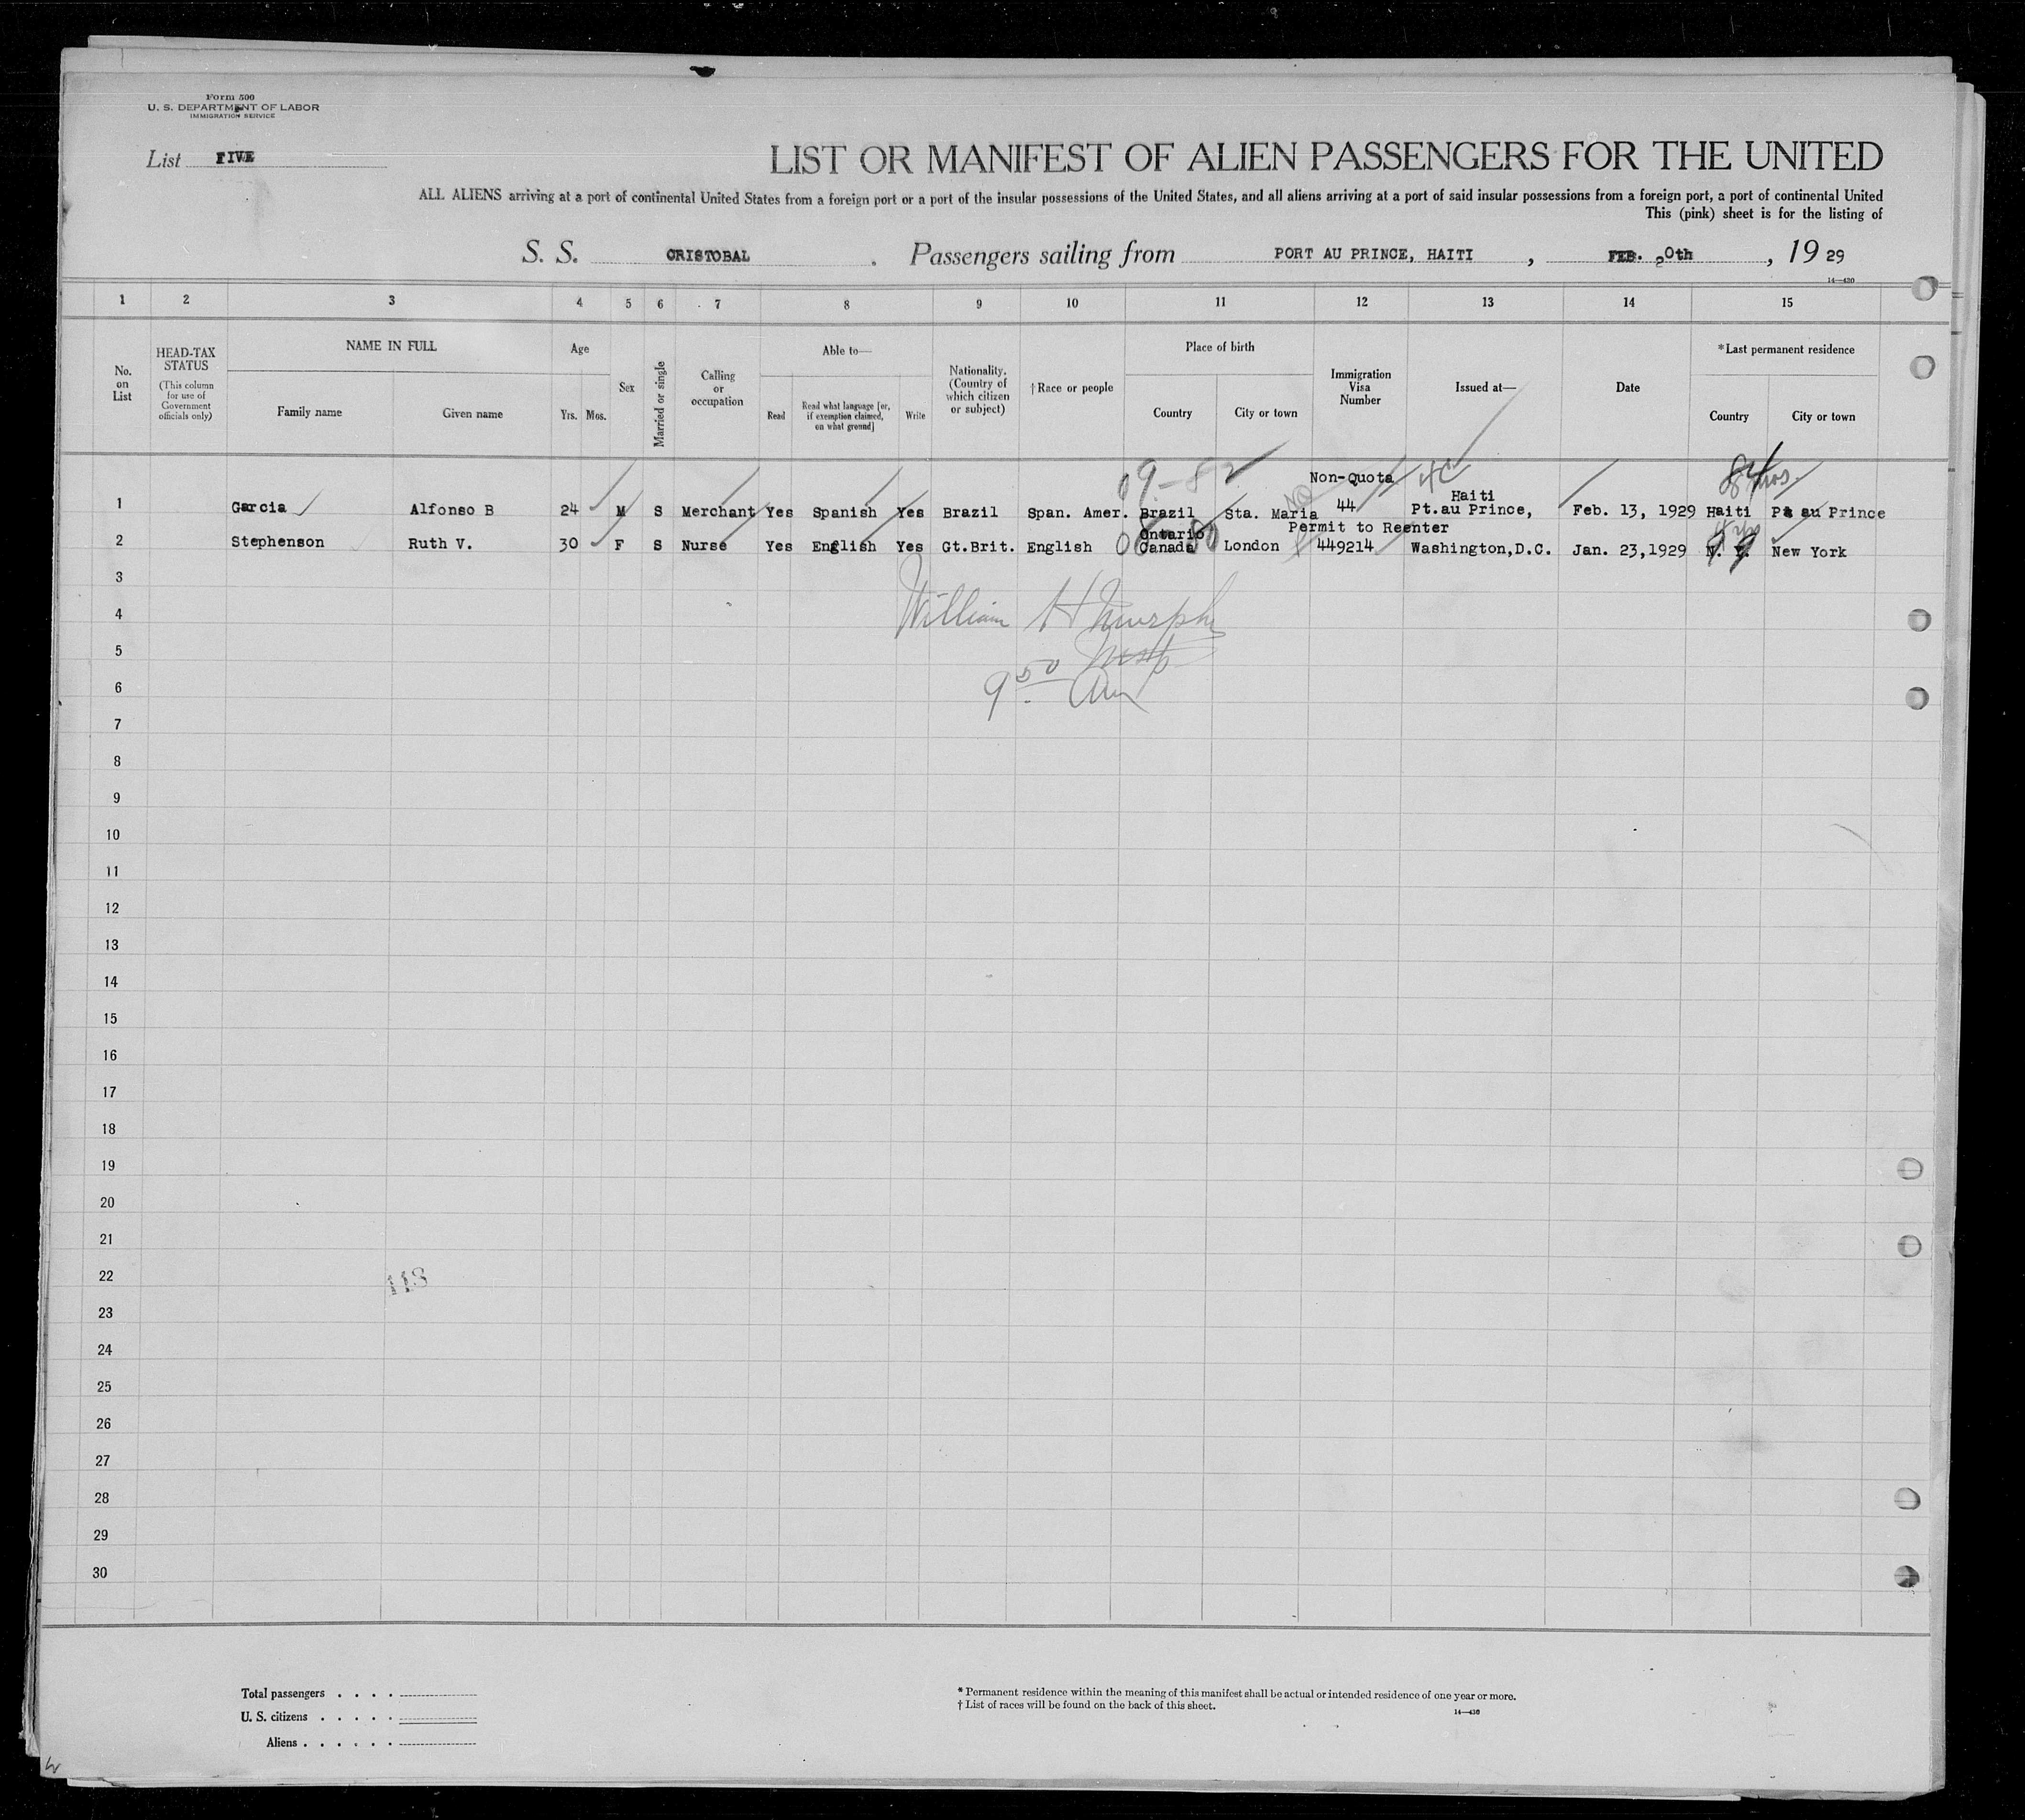 Form 500
U. S. DEPARTMENT OF LABOR
IMMIGRATION SERVICE
List FIVE
LIST OR MANIFEST OF ALIEN PASSENGERS FOR THE UNITED
ALL ALIENS arriving at a port of continental United States from a foreign port or a port of the insular possessions of the United States, and all aliens arriving at a port of said insular possessions from a foreign port, a port of continental United
This (pink) sheet is for the listing of
S. S. CRISTOBAL . Passengers sailing from PORT AU PRINCE, HAITI , FEB. 20th , 19 29
14—430
1 2 3 4 5 6 7 8 9 10 11 12 13 14 15
No. on List
HEAD-TAX STATUS
(This column for use of Government officials only)
NAME IN FULL
Family name Given name
Age
Yrs. Mos.
Sex
Married or single
Calling or occupation
Able to—
Read
Read what language [or, if exemption claimed, on what ground]
Write
Nationality. (Country of which citizen or subject)
†Race or people
Place of birth
Country City or town
Immigration Visa Number
Issued at—
Date
*Last permanent residence
Country City or town
09-82
Non-Quota
Haiti
1 Garcia Alfonso B 24 M S Merchant Yes Spanish Yes Brazil Span. Amer. Brazil Sta. Maria 44 Pt.au Prince, Feb. 13, 1929 Haiti Pt au Prince
Ontario Permit to Reenter
2 Stephenson Ruth V. 30 F S Nurse Yes English Yes Gt.Brit. English Canada London 449214 Washington,D.C. Jan. 23,1929 N. Y. New York
3
William H Murphy
4
5
9 50 am
6
7
8
9
10
11
12
13
14
15
16
17
18
19
20
21
22
113
23
24
25
26
27
28
29
30
Total passengers . . . .
U. S. citizens . . . . .
Aliens . . . . . .
* Permanent residence within the meaning of this manifest shall be actual or intended residence of one year or more.
† List of races will be found on the back of this sheet.
14—430